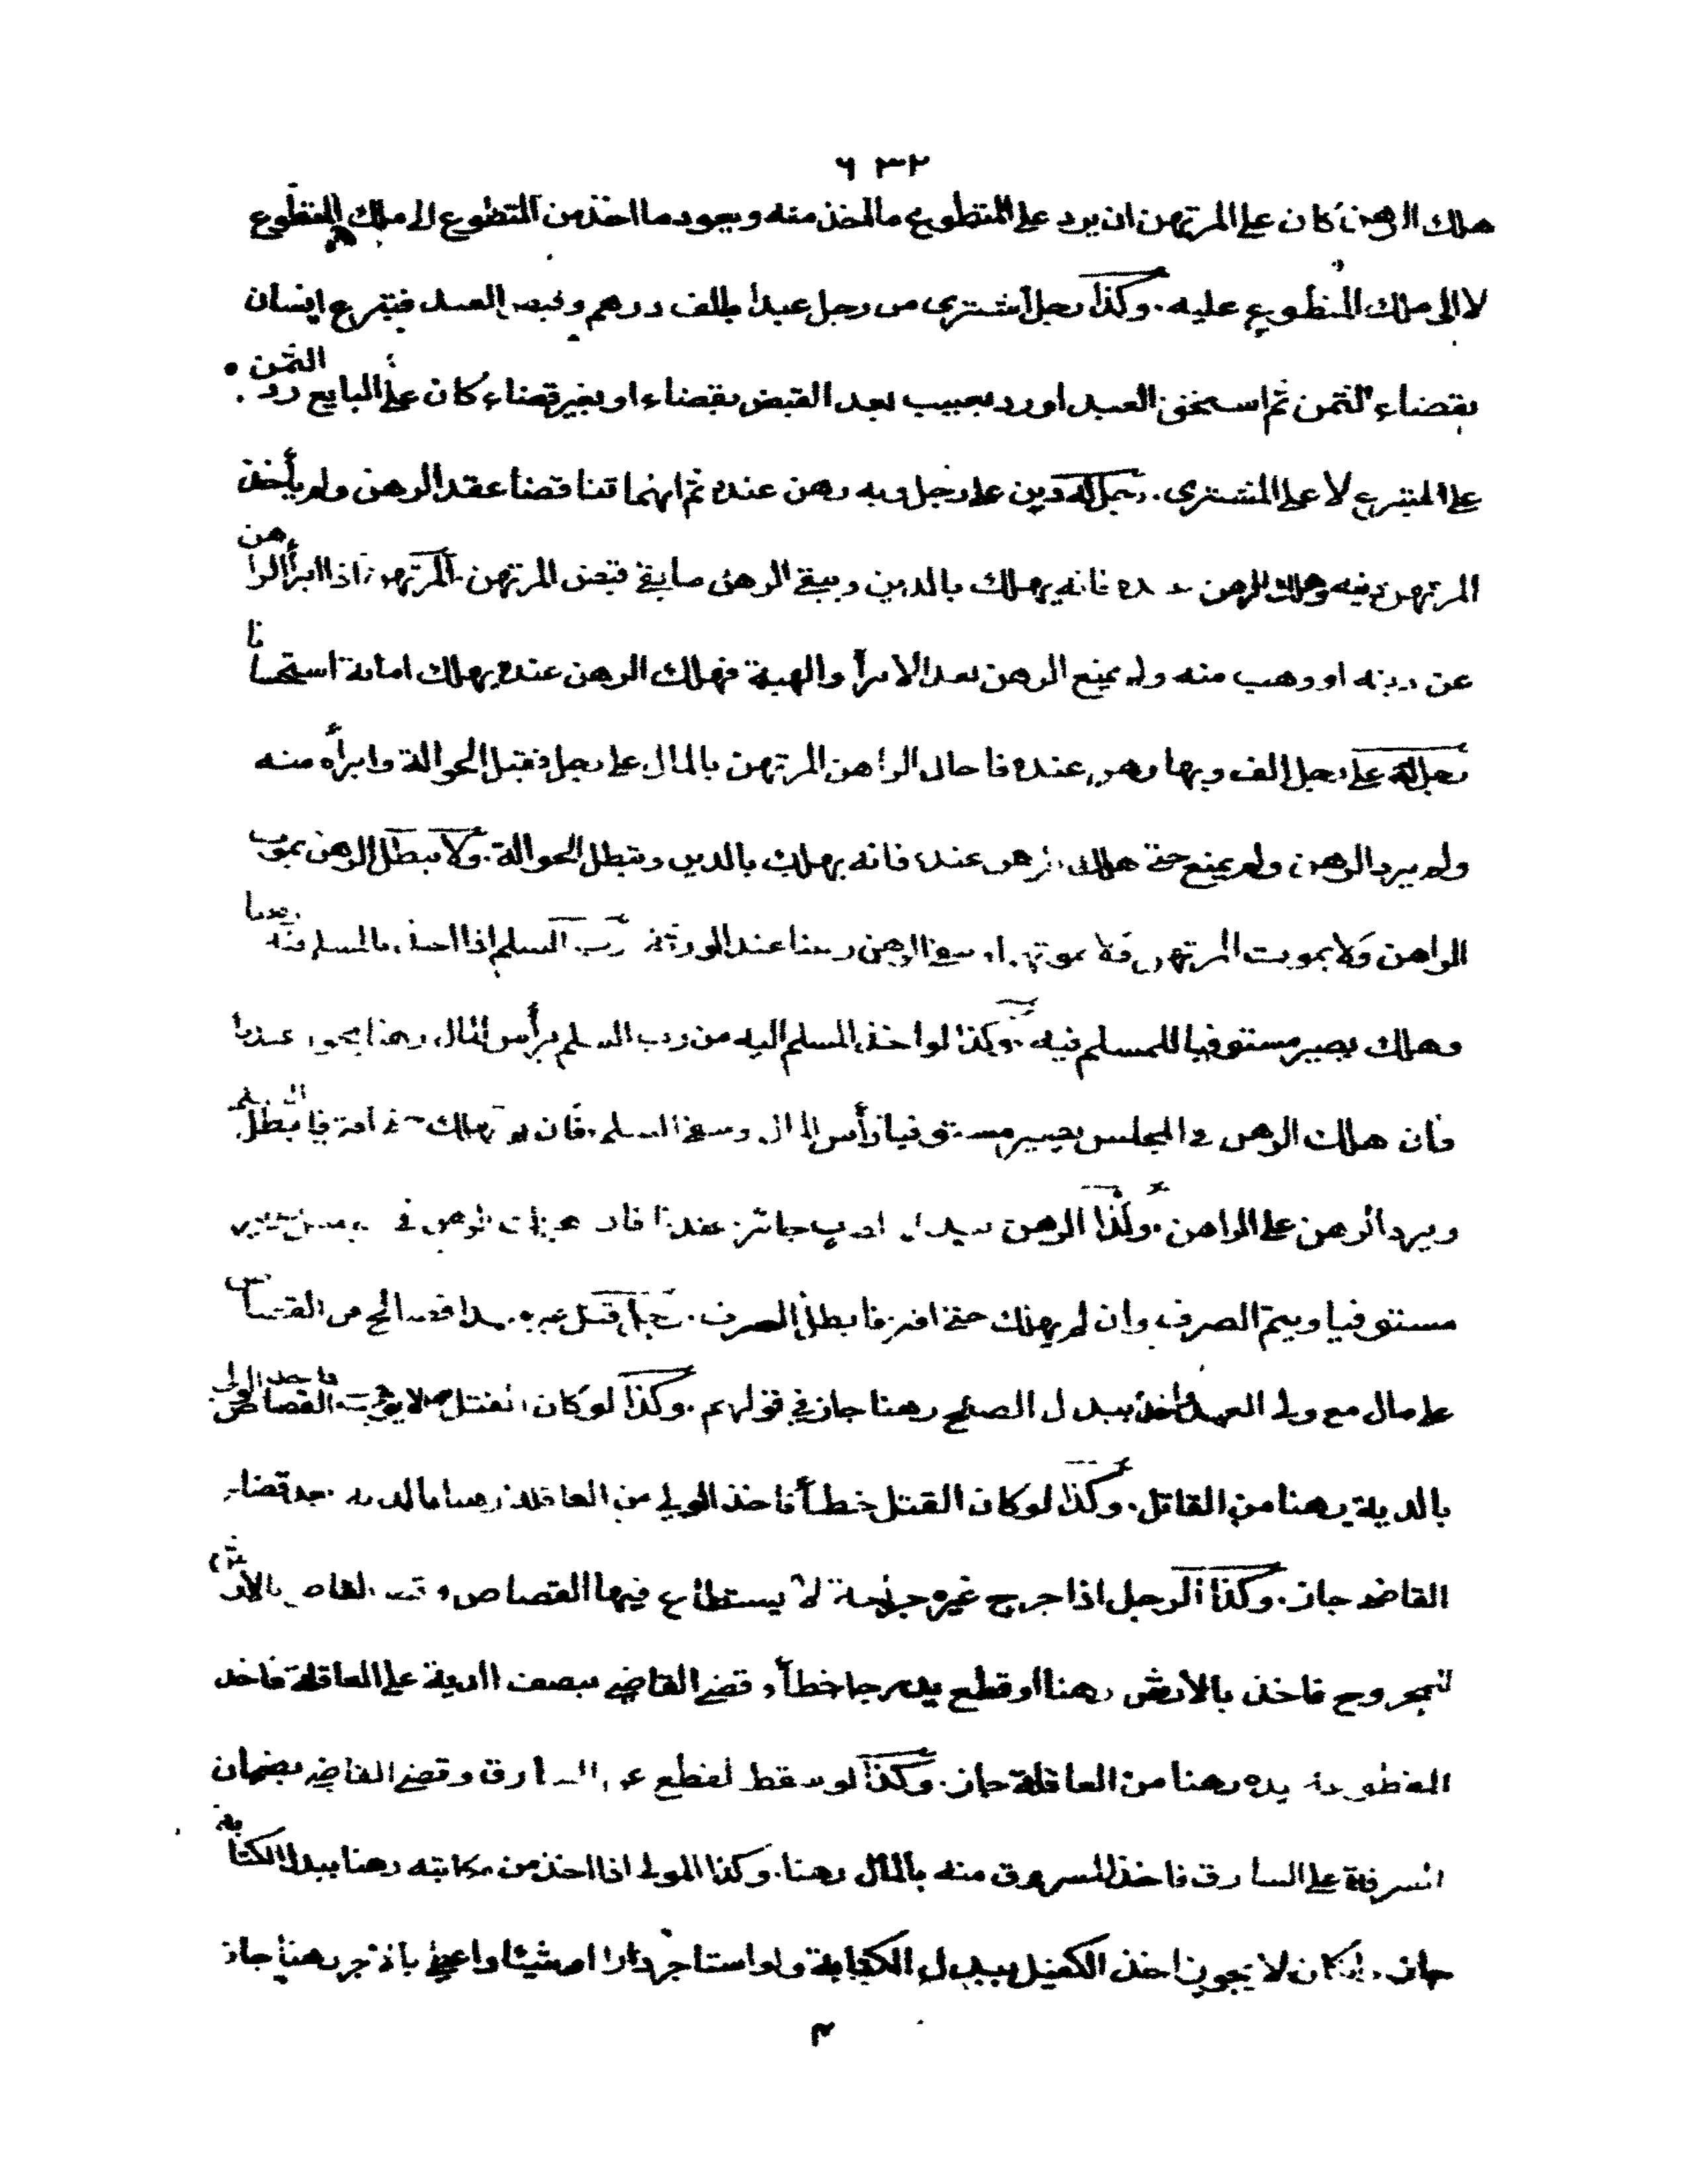 ٦٣٢
هلك الرهن كان على المرتهن ان يرد على المتطوع ما اخذ منه ويعود ما اخذ من المتطوع الى ملك المتطوع
لا الى ملك المتطوع عليه. وكذا رجل اشترى من رجل عبدا بالف درهم وقبض العبد فتبرع انسان
بقضاء الثمن ثم استحق العبد او رد بعيب بعد القبض بقضاء او بغير قضاء كان على البايع رد الثمن
على المتبرع لا على المشترى. رجل له دين على رجل وبه رهن عنده ثم انهما تناقضا عقد الرهن ولم يأخذ
المرتهن فيه وهلك الرهن عنده فانه يهلك بالدين ويبقى الرهن ما بقي قبض المرتهن. المرتهن اذا ابرأ الراهن
عن دينه او وهب منه ولم يمنع الرهن بعد الابرأ والهبة فهلك الرهن عنده يهلك امانة استحسانا
رجل له على رجل الف وبها رهن عنده فاحال الراهن المرتهن بالمال على رجل فقبل الحوالة وابرأه منه
ولم يرد الرهن ولم يمنع حتى هلك الرهن عنده فانه يهلك بالدين وتبطل الحوالة. ولا يبطل الرهن بموت
الراهن ولا بموت المرتهن ولا بموتهما ويبقى الرهن رهنا عند الورثة رب السلم اذا اخذ بالمسلم فيه رهنا
وهلك يصير مستوفيا للمسلم فيه. وكذا لو اخذ المسلم اليه من رب السلم برأس المال رهنا يجوز عندنا
فان هلك الرهن في المجلس يصير مستوفيا رأس المال وبقي السلم. فان لم يهلك حتى افترقا بطل السلم
ويرد الرهن على الراهن. وكذا الرهن ببدل الصرف جائز عندنا فان هلك الرهن في المجلس يصير
مستوفيا ويتم الصرف وان لم يهلك حتى افترقا بطل الصرف. رجل قتل غيره عمدا فصالح من القصاص
على مال مع ولى العمد واخذ ببدل الصلح رهنا جاز في قولهم. وكذا لو كان القتل مما لا يوجب القصاص فاخذ الولى
بالدية رهنا من القاتل. وكذا لو كان القتل خطأ فاخذ الولي من العاقلة رهنا بالدية بعد قضاء
القاضى جاز. وكذا الرجل اذا جرح غيره جراحة لا يستطاع فيها القصاص وقضى القاضى بالارش
للمجروح فاخذ بالارش رهنا او قطع يد رجل خطأ وقضى القاضي بنصف الدية على العاقلة فاخذ
المقطوعة يده رهنا من العاقلة جاز. وكذا لو سقط القطع عن السارق وقضى القاضي بضمان
السرقة على السارق فاخذ المسروق منه بالمال رهنا. وكذا المولى اذا اخذ من مكاتبه رهنا ببدل الكتابة
جاز. وان كان لا يجوز اخذ الكفيل ببدل الكتابة ولو استاجر دارا او شيئا واعطى بالاجر رهنا جاز